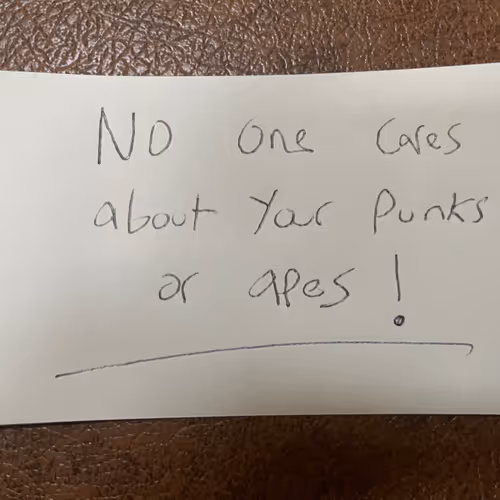 No one cares
about your Punks
or apes!